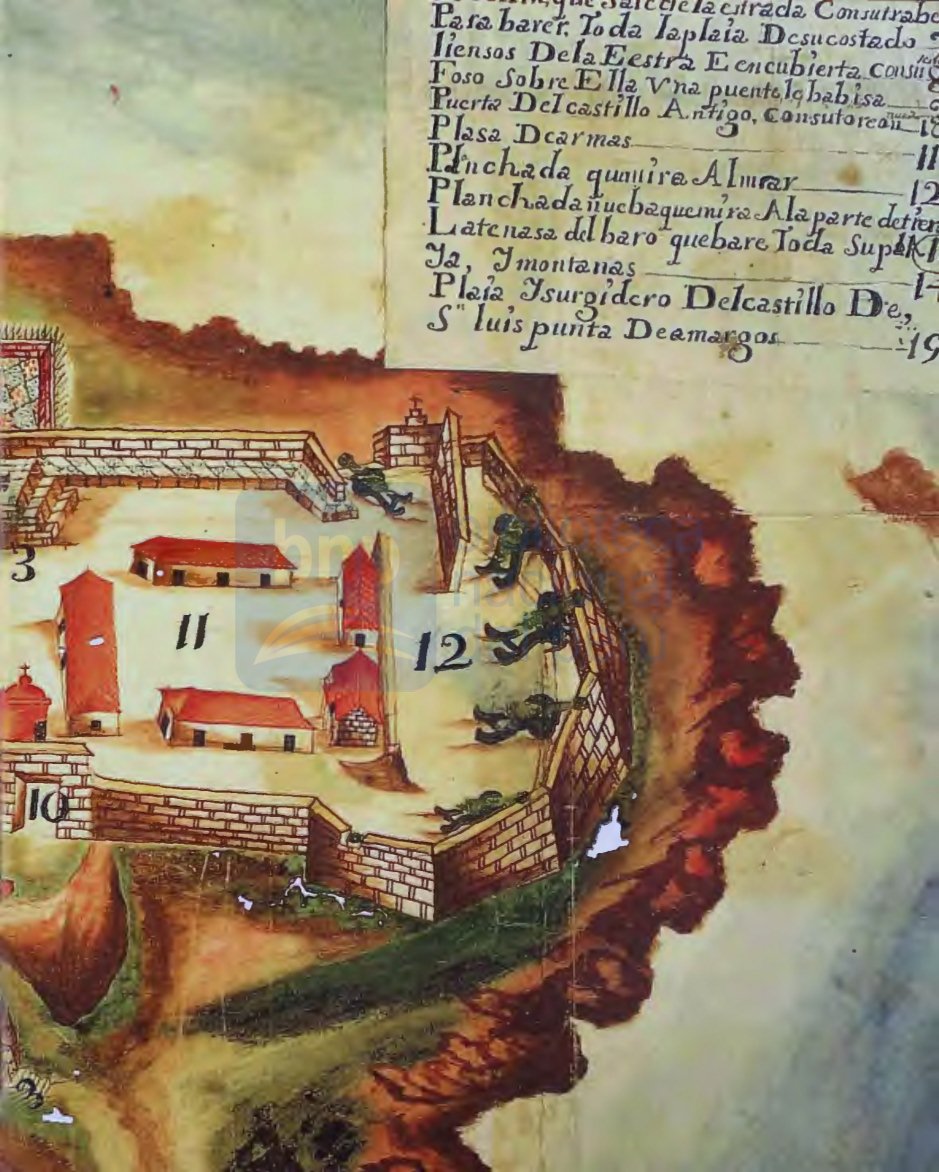 que sale de la estrada Consutrabe
Para barer. Toda laplaia Desucostado
liensos Dela Eestra E encubierta consu
Foso Sobre Ella Vna puente lebabisa
Puerta Delcastillo Antigo, consutoreon 10
Plasa Dearmas 11
Planchada qumira Almrar 12
Planchada ñuebaquemira Alaparte detier
Latenasa del baro quebare Toda Supla
Ya, Ymontanas 1
Plaia Ysurgidero Delcastillo De,
Sn luis punta Deamargos 19
3
11
12
10
bnp
nacional